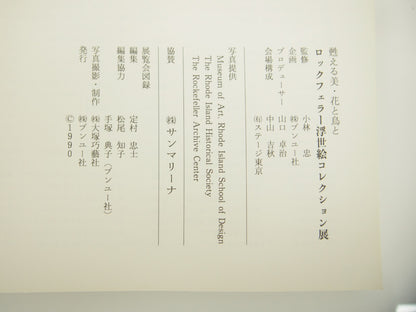 甦える美・花と鳥と
ロックフェラー浮世絵コレクション展
監修 小林 忠
企画 ㈱ブンユー社
プロデューサー 山口 卓治
会場構成 中山 吉秋
㈲ステージ東京
写真提供
Museum of Art, Rhode Island School of Design
The Rhode Island Historical Society
The Rockefeller Archive Center
協賛 ㈱サンマリーナ
展覧会図録
編集 定村 忠士
編集協力 松尾 知子
手塚 典子(ブンユー社)
写真撮影・制作 ㈱大塚巧藝社
発行 ㈱ブンユー社
©1990